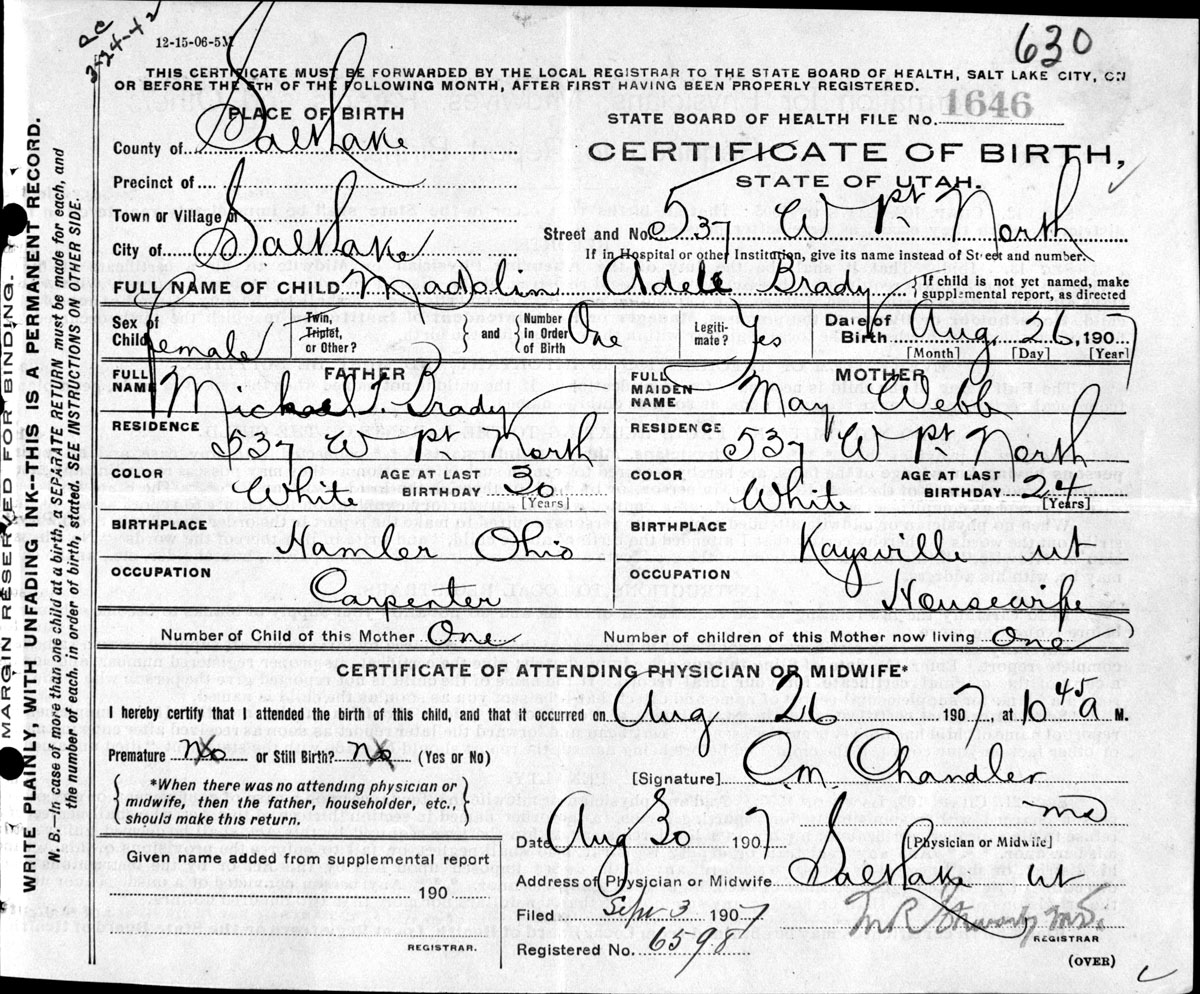 ac
3-24-42
12-15-06-5M
630
THIS CERTIFICATE MUST BE FORWARDED BY THE LOCAL REGISTRAR TO THE STATE BOARD OF HEALTH, SALT LAKE CITY, ON
OR BEFORE THE 5TH OF THE FOLLOWING MONTH, AFTER FIRST HAVING BEEN PROPERLY REGISTERED.
PLACE OF BIRTH
STATE BOARD OF HEALTH FILE NO. 1646
County of Salt Lake
CERTIFICATE OF BIRTH,
STATE OF UTAH.
Precinct of
Town or Village of
Street and No. 537 W pt North
City of Salt Lake
If In Hospital or other Institution, give its name instead of Street and number.
FULL NAME OF CHILD Madolin Adele Brady { If child is not yet named, make
supplemental report, as directed
Sex of Child female
Twin, Triplet, or Other? } and { Number in Order of Birth One
Legiti-mate? Yes
Date of Birth Aug 26, 1907
[Month] [Day] [Year]
FATHER
FULL NAME Michael J. Brady
MOTHER
FULL MAIDEN NAME May Webb
RESIDENCE 537 W pt North
RESIDENCE 537 W pt North
COLOR White AGE AT LAST BIRTHDAY 30 [Years]
COLOR White AGE AT LAST BIRTHDAY 24 [Years]
BIRTHPLACE Hamler Ohio
BIRTHPLACE Kaysville Ut
OCCUPATION Carpenter
OCCUPATION Housewife
Number of Child of this Mother One
Number of children of this Mother now living One
CERTIFICATE OF ATTENDING PHYSICIAN OR MIDWIFE*
I hereby certify that I attended the birth of this child, and that it occurred on Aug 26 1907, at 10 45 a M.
Premature No or Still Birth? No (Yes or No)
{ *When there was no attending physician or
midwife, then the father, householder, etc.,
should make this return. }
[Signature] C. M. Chandler
MD
[Physician or Midwife]
Date Aug 30 1907
Given name added from supplemental report
190
REGISTRAR.
Address of Physician or Midwife Salt Lake Ut
Filed Sept 3 1907
Registered No. 6598
REGISTRAR
(OVER)
MARGIN RESERVED FOR BINDING.
WRITE PLAINLY, WITH UNFADING INK--THIS IS A PERMANENT RECORD.
N. B.--In case of more than one child at a birth, a SEPARATE RETURN must be made for each, and
the number of each, in order of birth, stated. SEE INSTRUCTIONS ON OTHER SIDE.